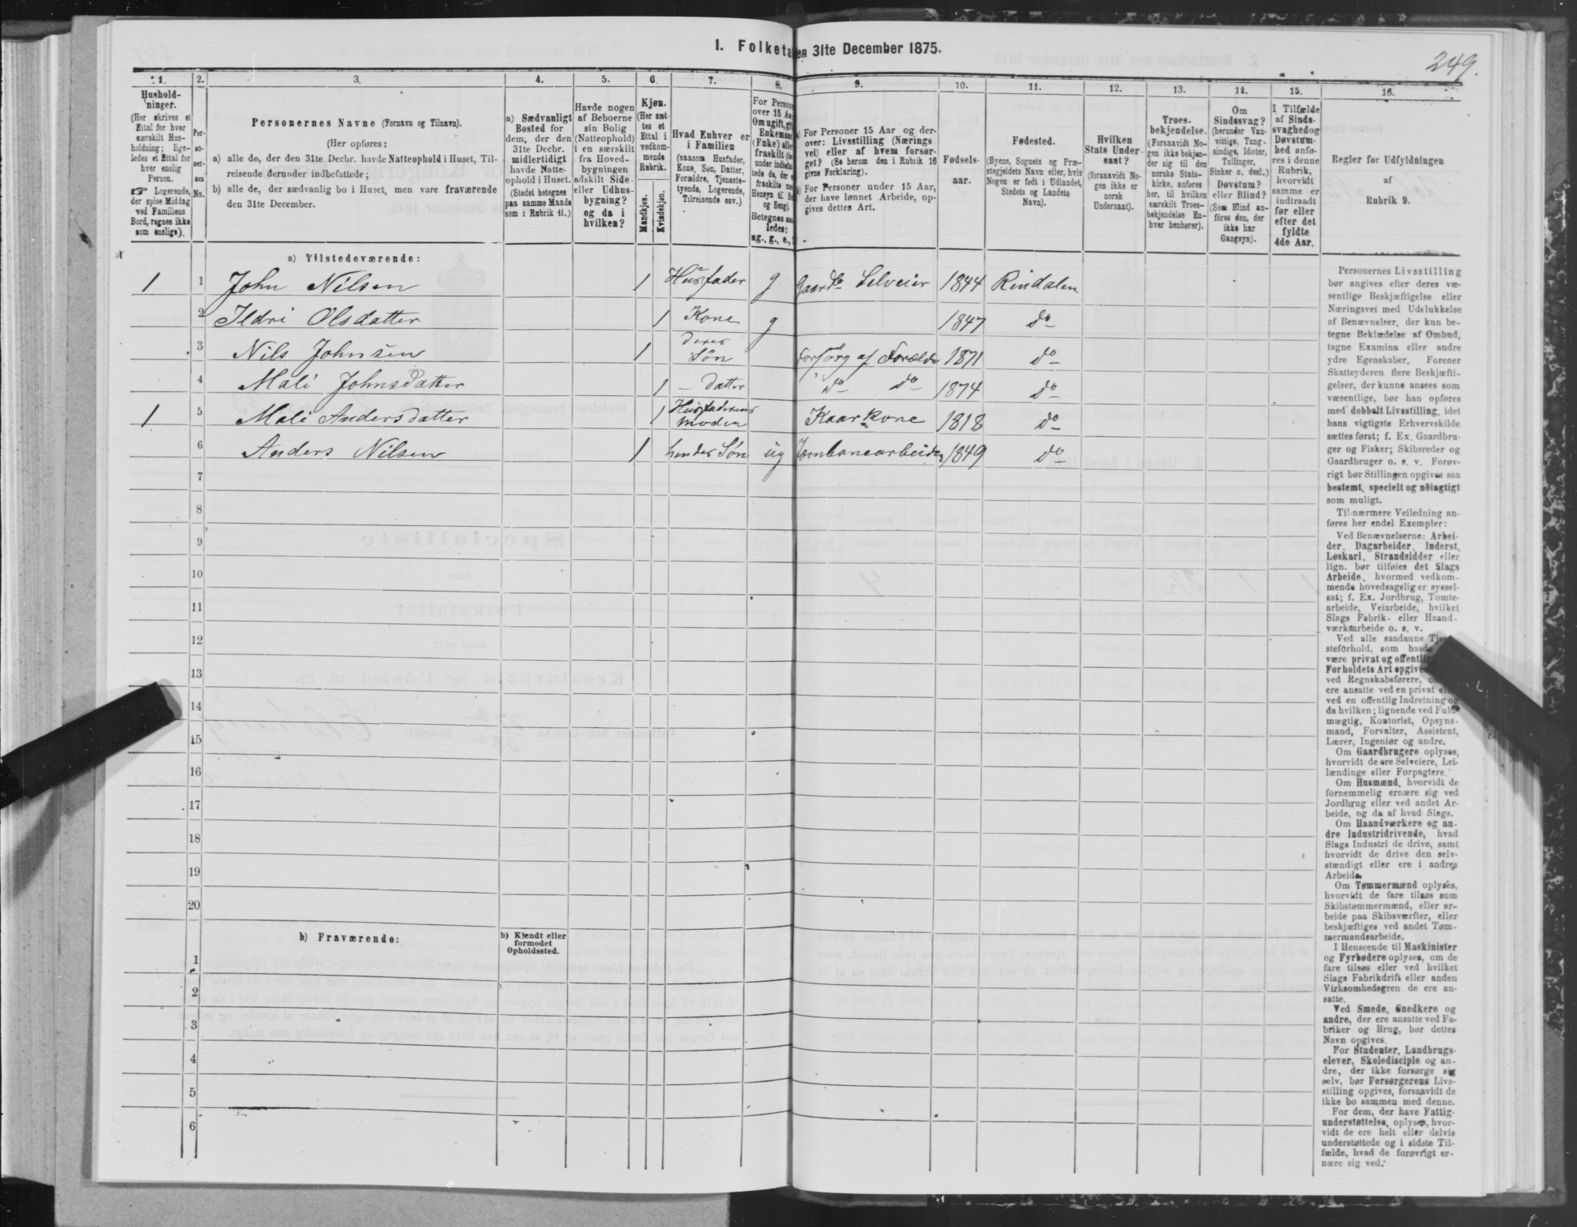 I. Folketal den 31te December 1875.
249.
1.
Hushold-
ninger.
(Her skrives et
Ettal for hver
særskilt Hus-
holdning; lige-
ledes et Ettal for
hver enslig
Person.
☞ Logerende,
der spise Middag
ved Familiens
Bord, regnes ikke
som enslige).
2.
Per-
so-
ner-
nes
No.
3.
Personernes Navne (Fornavn og Tilnavn).
(Her opføres:
a) alle de, der den 31te Decbr. havde Natteophold i Huset, Til-
reisende derunder indbefattede;
b) alle de, der sædvanlig bo i Huset, men vare fraværende
den 31te December.
4.
a) Sædvanligt
Bosted for
dem, der den
31te Decbr.
midlertidigt
havde Natte-
ophold i Huset.
(Stedet betegnes
paa samme Maade
som i Rubrik 11.)
5.
Havde nogen
af Beboerne
sin Bolig
(Natteophold)
i en særskilt
fra Hoved-
bygningen
adskilt Side-
eller Udhus-
bygning?
og da i
hvilken?
6.
Kjøn.
(Her sæt-
tes et
Ettal i
vedkom-
mende
Rubrik.
Mandkjøn.
Kvindekjøn.
7.
Hvad Enhver er
i Familien
(saasom Husfader,
Kone, Søn, Datter,
Forældre, Tjeneste-
tyende, Logerende,
Tilreisende osv.)
8.
For Person
over 15 Aa
Om ugift, gift
Enkemand
(Enke) eller
fraskilt
9.
a) For Personer 15 Aar og der-
over: Livsstilling (Nærings-
vei) eller af hvem forsør-
get? (Se herom den i Rubrik 16
givne Forklaring).
b) For Personer under 15 Aar,
der have lønnet Arbeide, op-
gives dettes Art.
10.
Fødsels-
aar.
11.
Fødested.
(Byens, Sognets og Præ-
stegjeldets Navn eller, hvis
Nogen er født i Udlandet,
Stedets og Landets
Navn).
12.
Hvilken
Stats Under-
saat?
(foraavidt No-
gen ikke er
norsk
Undersaat).
13.
Troes-
bekjendelse.
(Forsaavidt No-
gen ikke bekjen-
der sig til den
norske Stats-
kirke, anføres
her, til hvilken
særskilt Troes-
bekjendelse En-
hver henhører).
14.
Om
Sindssvag?
(herunder Van-
vittige, Tung-
sindige, Idioter,
Tullinger,
Sinker o. desl.)
Døvstum?
eller Blind?
(Som Blind an-
føres den, der
ikke har
Gangsyn).
15.
I Tilfælde
af Sinds-
svaghed og
Døvstum-
hed anfø-
res i denne
Rubrik,
hvorvidt
samme er
indtraadt
før eller
efter det
fyldte
4de Aar.
16.
Regler for Udfyldningen
af
Rubrik 9.
a) Tilstedeværende:
1 1 John Nilsen 1 Husfader g Gaardb. Selveier 1844 Rindalen
2 Ildri Olsdatter 1 Kone g 1847 do
3 Nils Johnsen 1 deres Søn Forsörg af Forældre 1871 do
4 Mali Johnsdatter 1 – datter do do 1874 do
1 5 Mali Andersdatter 1 Husfaderens moder Kaarkone 1818 do
6 Anders Nilsen 1 hendes Søn ug Jernbanearbeider 1849 do
7
8
9
10
11
12
13
14
15
16
17
18
19
20
b) Fraværende:
b) Kjendt eller
formodet
Opholdssted.
1
2
3
4
5
6
Personernes Livsstilling
bør angives efter deres væ-
sentlige Beskjæftigelse eller
Næringsvei med Udelukkelse
af Benævnelser, der kun be-
tegne Beklædelse af Ombud,
tagne Examina eller andre
ydre Egenskaber. Forener
Skatteyderen flere Beskjæfti-
gelser, der kunne ansees som
væsentlige, bør han opføres
med dobbelt Livsstilling, idet
hans vigtigste Erhvervskilde
sættes først; f. Ex. Gaardbru-
ger og Fisker; Skibsreder og
Gaardbruger o. s. v. Forøv-
rigt bør Stillingen opgives saa
bestemt, specielt og nøiagtigt
som muligt.
Til nærmere Veiledning an-
føres her endel Exempler:
Ved Benævnelserne: Arbei-
der, Dagarbeider, Inderst,
Løskarl, Strandsidder eller
lign. bør tilføies det Slags
Arbeide, hvormed vedkom-
mende hovedsagelig er syssel-
sat; f. Ex. Jordbrug, Tomte-
arbeide, Veiarbeide, hvilket
Slags Fabrik- eller Haand-
værksarbeide o. s. v.
Ved alle saadanne
steforhold, som
være privat og
Forholdets Art
ved Regnskabsførere,
ere ansatte ved en privat
ved en offentlig Indretning og
da hvilken; lignende ved Fuld-
mægtig, Kontorist, Opsyns-
mand, Forvalter, Assistent,
Lærer, Ingeniør og andre.
Om Gaardbrugere oplyses,
hvorvidt de ere Selveiere, Lei-
lændinge eller Forpagtere.
Om Husmænd, hvorvidt de
fornemmelig ernære sig ved
Jordbrug eller ved andet Ar-
beide, og da af hvad Slags.
Om Haandværkere og an-
dre Industridrivende, hvad
Slags Industri de drive, samt
hvorvidt de drive den selv-
stændigt eller ere i andres
Arbeide.
Om Tømmermænd oplyses,
hvorvidt de fare tilsøs som
Skibstømmermænd, eller ar-
beide paa Skibsværfter, eller
beskjæftiges ved andet Tøm-
mermandsarbeide.
I Henseende til Maskinister
og Fyrbødere oplyses, om de
fare tilsøs eller ved hvilket
Slags Fabrikdrift eller anden
Virksomhedsgren de ere an-
satte.
Ved Smede, Snedkere og
andre, der ere ansatte ved Fa-
briker og Brug, bør dettes
Navn opgives.
For Studenter, Landbrugs-
elever, Skoledisciple og an-
dre, der ikke forsørge sig
selv, bør Forsørgerens Livs-
stilling opgives, forsaavidt de
ikke bo sammen med denne.
For dem, der have Fattig-
understøttelse, oplyses, hvor-
vidt de ere helt eller delvis
understøttede og i sidste Til-
fælde, hvad de forøvrigt er-
nære sig ved.